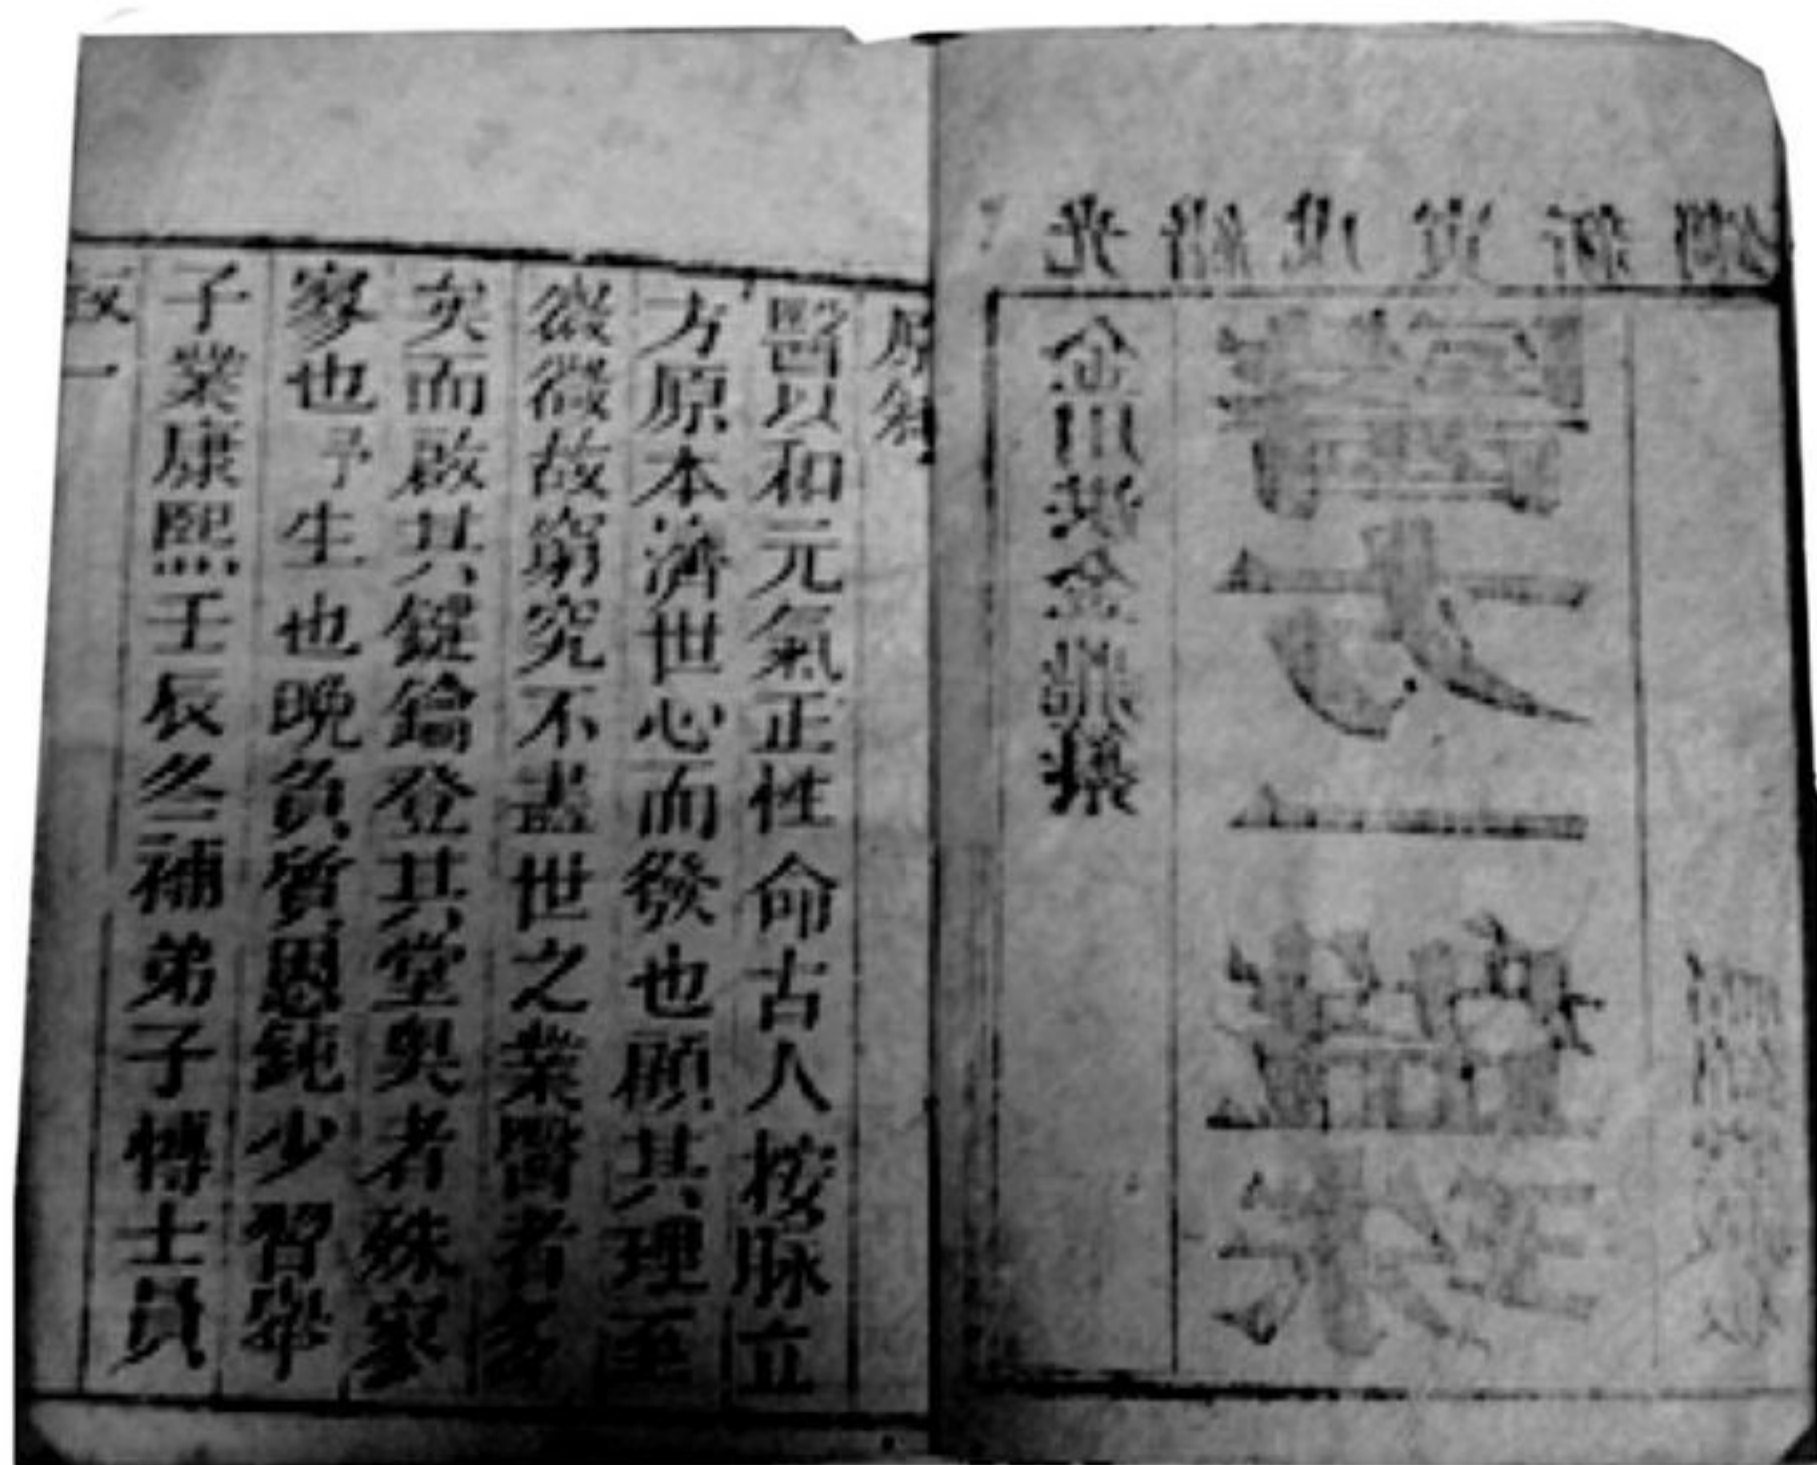 光緒戊寅新鐫
金川洪金鼎撰
醫一盤珠
原叙
醫以和元氣正性命古人按脉立
方原本濟世心而發也顧其理至
微微故窮究不盡世之業醫者多
矣而啟其鍵鑰登其堂奥者殊寥
寥也予生也晚負質愚鈍少習舉
子業康熙壬辰冬補弟子博士員
叙一